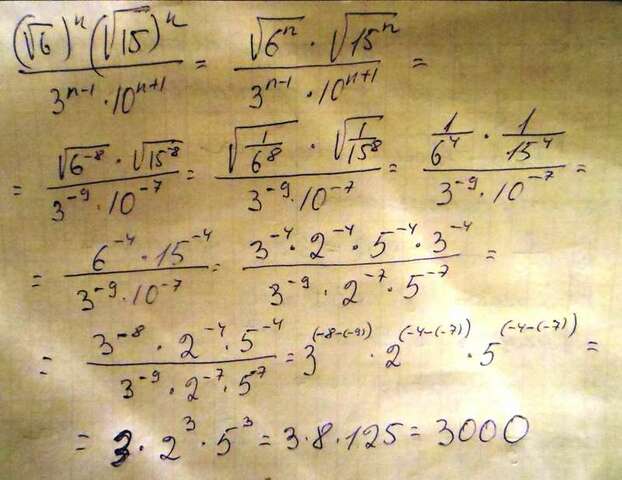 (√6)^n (√15)^n / 3^(n-1) · 10^(n+1) = √6^n · √15^n / 3^(n-1) · 10^(n+1) =
= √6^-8 · √15^-8 / 3^-9 · 10^-7 = √(1/6^8) · √(1/15^8) / 3^-9 · 10^-7 = 1/6^4 · 1/15^4 / 3^-9 · 10^-7 =
= 6^-4 · 15^-4 / 3^-9 · 10^-7 = 3^-4 · 2^-4 · 5^-4 · 3^-4 / 3^-9 · 2^-7 · 5^-7 =
= 3^-8 · 2^-4 · 5^-4 / 3^-9 · 2^-7 · 5^-7 = 3^(-8-(-9)) · 2^(-4-(-7)) · 5^(-4-(-7)) =
= 3 · 2^3 · 5^3 = 3 · 8 · 125 = 3000